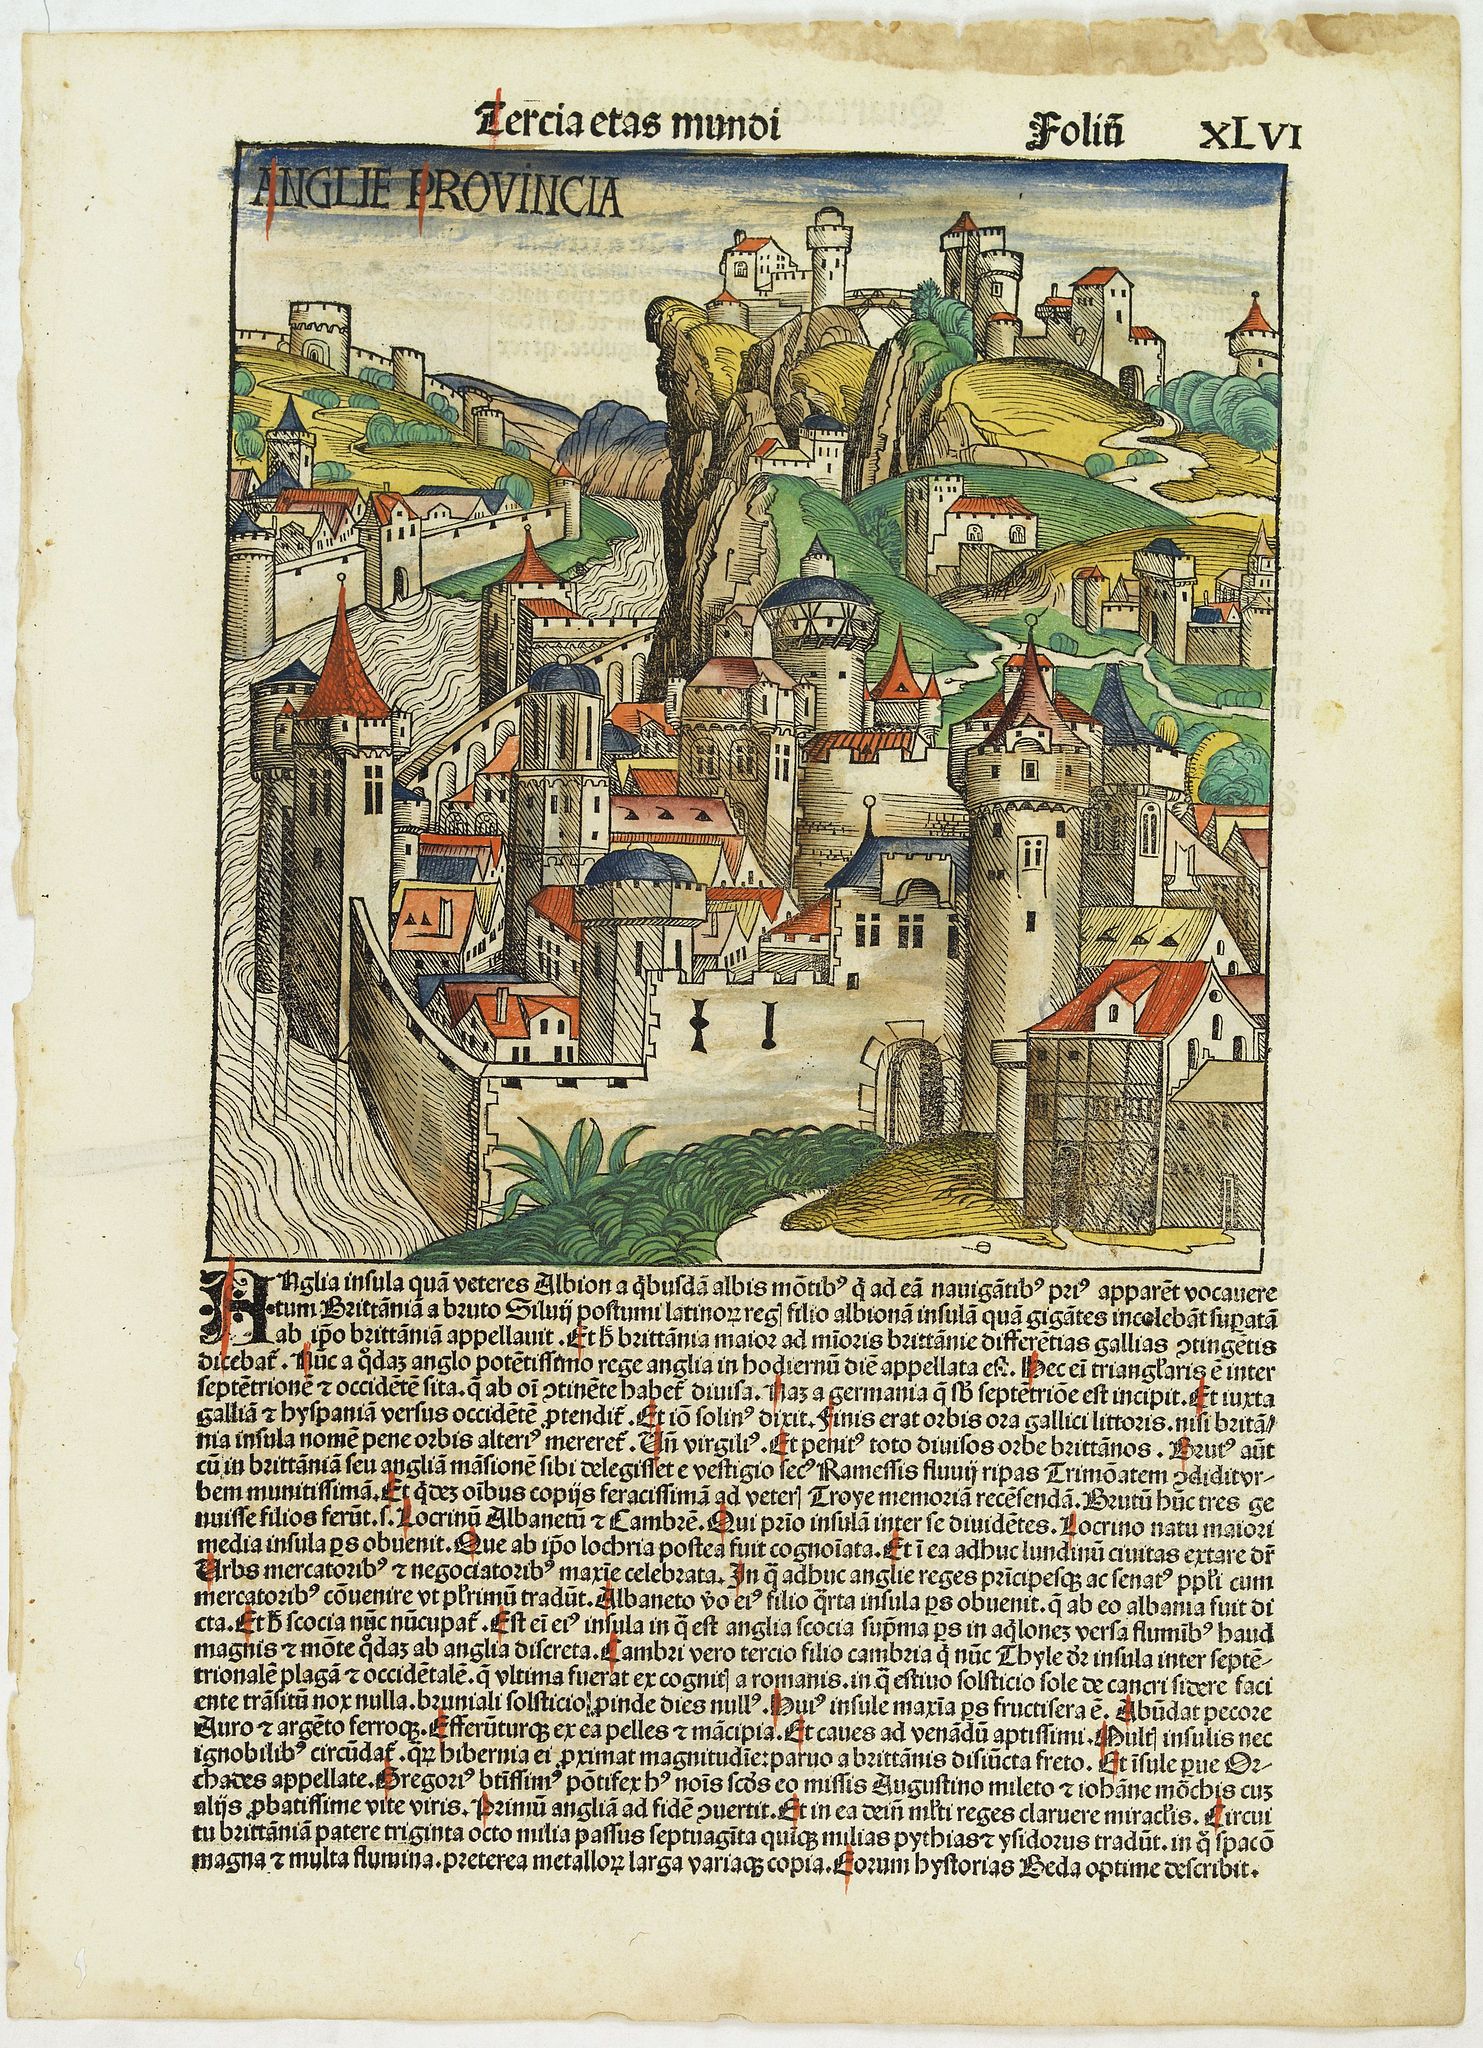 Tercia etas mundi Foliū XLVI
ANGLIE PROVINCIA
ANglia insula quā veteres Albion a q̄busdā albis mōtibꝰ q̄ ad eā nauigātibꝰ priꝰ apparēt vocauere
tum Brittāniā a bruto Siluij postumi latinoꝝ reg filio albionā insulā quā gigātes incolebāt suꝑatā
ab ip̄o brittāniā appellauit. Et h̄ brittānia maior ad mīoris brittānie differētias gallias ꝯtingētis
dicebat̄. Nūc a q̊daꝫ anglo potētissimo rege anglia in hodiernū diē appellata est. Hec em̄ triangl̄aris ē inter
septētrionē ⁊ occidētē sita. q̄ ab om̄ ꝯtinēte habet̄ diuisa. Naꝫ a germania q̄ sb̄ septētriōe est incipit. Et iuxta
galliā ⁊ hyspaniā versus occidētē ꝓtendit̄. Et iō solinꝰ dixit. Finis erat orbis ora gallici littoris. nisi britā/
nia insula nomē pene orbis alteriꝰ mereret̄. Vn̄ virgiliꝰ. Et penitꝰ toto diuisos orbe brittānos. Brutꝰ aūt
cū in brittāniā seu angliā māsionē sibi delegisset e vestigio secꝰ Ramessis fluuij ripas Trimōatem ꝯdidit vr-
bem munitissimā. Et q̄deꝫ oībus copijs feracissimā ad veter Troye memoriā recēsendā. Brutū hūc tres ge
nuisse filios ferūt. s. Locrinū Albanetū ⁊ Cambrē. Qui prīo insulā inter se diuidētes. Locrino natu maiori
media insula ꝑs obuenit. Que ab ip̄o lochria postea fuit cognoīata. Et ī ea adhuc lundinū ciuitas extare dr̄
Vrbs mercatoribꝰ ⁊ negociatoribꝰ maxīe celebrata. In q̄ adhuc anglie reges prīcipesqꝫ ac senatꝰ ppl̄i cum
mercatoribꝰ cōuenire vt pl̄rimū tradūt. Albaneto v̊o eiꝰ filio q̄rta insula ꝑs obuenit. q̄ ab eo albania fuit di
cta. Et h̄ scocia nūc nūcupat̄. Est em̄ eiꝰ insula in q̄ est anglia scocia supm̄a ꝑs in aq̄loneꝫ versa flumībꝰ haud
magnis ⁊ mōte q̊daꝫ ab anglia discreta. Cambri vero tercio filio cambria q̄ nūc Thyle dr̄ insula inter septē-
trionalē plagā ⁊ occidētalē. q̄ vltima fuerat ex cognit a romanis. in q̄ estiuo solsticio sole de cancri sidere faci
ente trāsitū nox nulla. brumali solsticio ꝓinde dies nullꝰ. Huiꝰ insule maxīa ꝑs fructifera ē. Abūdat pecore
Auro ⁊ argēto ferroqꝫ. Efferūturqꝫ ex ea pelles ⁊ mācipia. Et canes ad venādū aptissimi. Mult insulis nec
ignobilibꝰ circūdat̄. q̄ꝝ hibernia ei ꝓximat magnitudīe: paruo a brittānis disiūcta freto. Et īsule ꝑue Or-
chades appellate. Gregoriꝰ btīssimꝰ pōtifex hꝰ noīs scd̄s eo missis Augustino mileto ⁊ iohāne mōchis cuꝫ
alijs ꝓbatissime vite viris. Primū angliā ad fidē ꝯuertit. Et in ea dein̄ ml̄ti reges claruere miracl̄is. Circui
tu brittāniā patere triginta octo milia passus septuagīta quīqꝫ milias pythias ⁊ ysidorus tradūt. in q̊ spacō
magna ⁊ multa flumina. preterea metalloꝝ larga variaqꝫ copia. Eorum hystorias Beda optime describit.